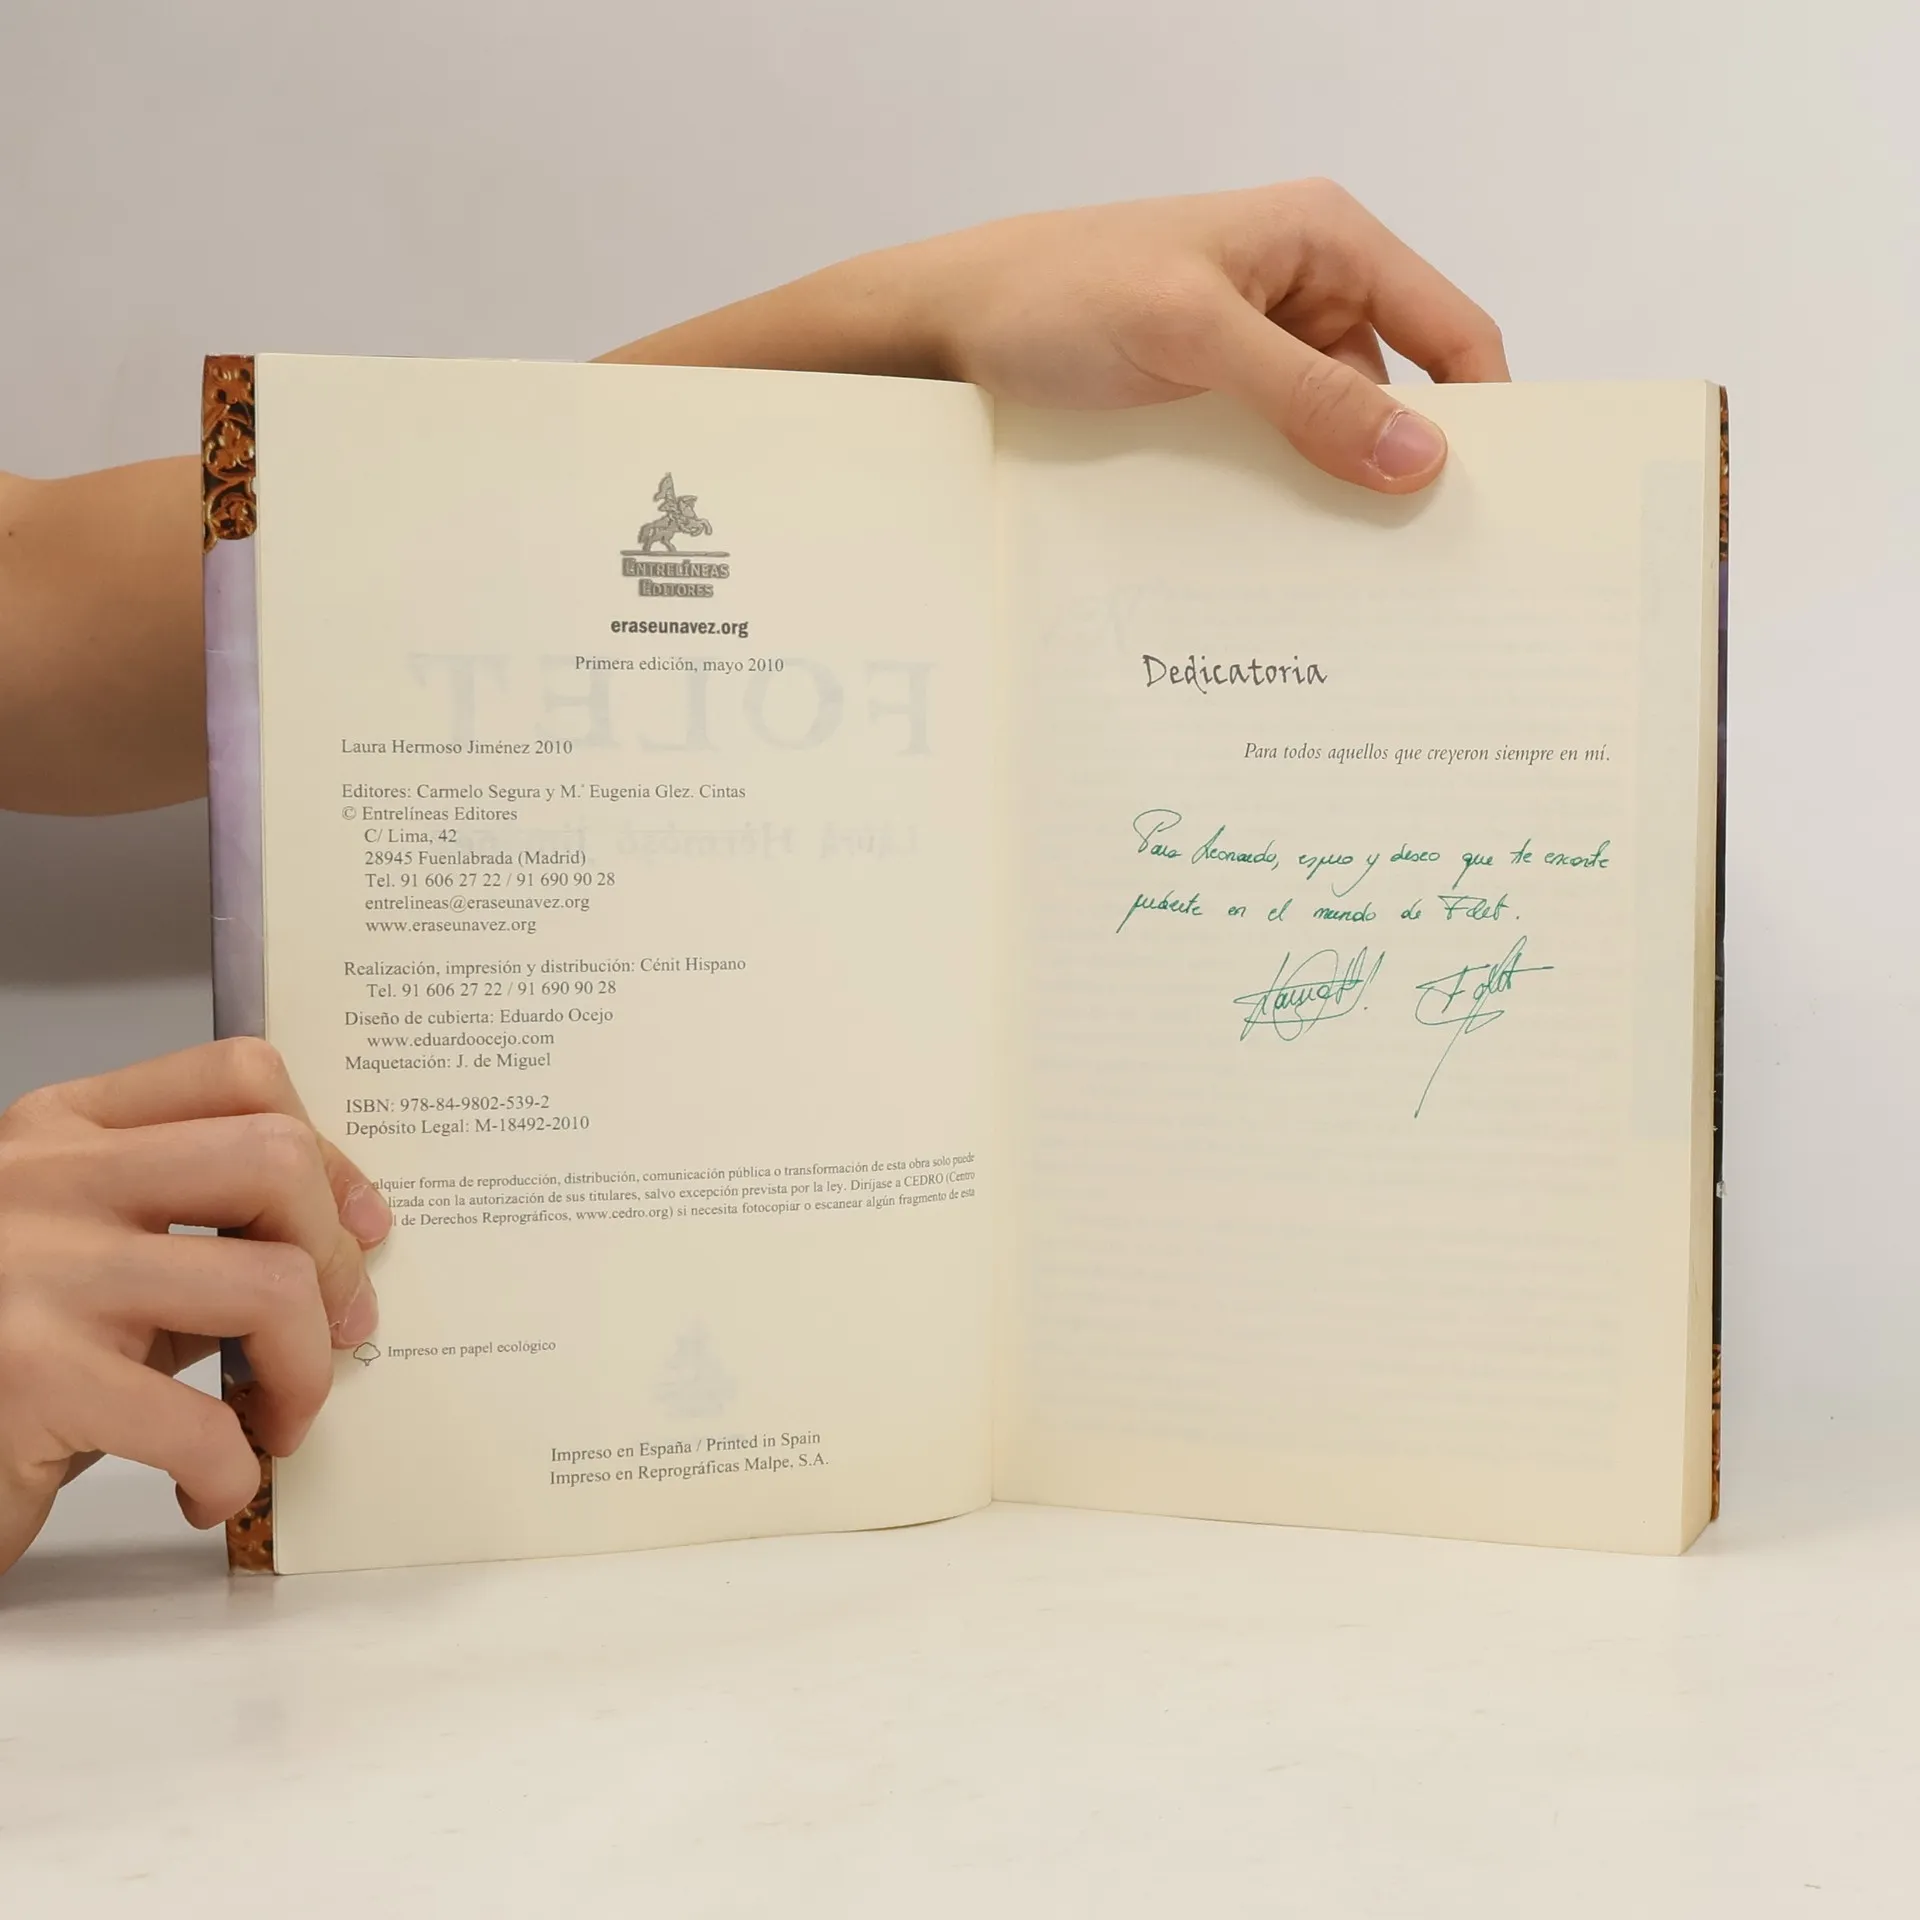 ENTRELÍNEAS
EDITORES
eraseunavez.org
Primera edición, mayo 2010
Laura Hermoso Jiménez 2010
Editores: Carmelo Segura y M.ª Eugenia Glez. Cintas
© Entrelíneas Editores
C/ Lima, 42
28945 Fuenlabrada (Madrid)
Tel. 91 606 27 22 / 91 690 90 28
entrelineas@eraseunavez.org
www.eraseunavez.org
Realización, impresión y distribución: Cénit Hispano
Tel. 91 606 27 22 / 91 690 90 28
Diseño de cubierta: Eduardo Ocejo
www.eduardoocejo.com
Maquetación: J. de Miguel
ISBN: 978-84-9802-539-2
Depósito Legal: M-18492-2010
alquier forma de reproducción, distribución, comunicación pública o transformación de esta obra solo puede
lizada con la autorización de sus titulares, salvo excepción prevista por la ley. Diríjase a CEDRO (Centro
l de Derechos Reprográficos, www.cedro.org) si necesita fotocopiar o escanear algún fragmento de esta
Impreso en papel ecológico
Impreso en España / Printed in Spain
Impreso en Reprográficas Malpe, S.A.
Dedicatoria
Para todos aquellos que creyeron siempre en mí.
Para Leonardo, espero y deseo que te
en el mundo de Folet.
Folet